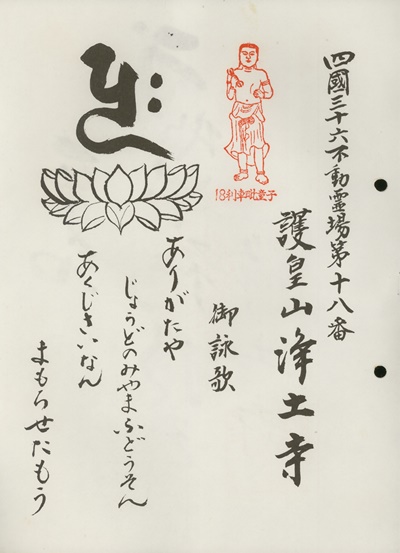 四國三十六不動霊場第十八番
護皇山浄土寺
御詠歌
ありがたや
じょうどのみやまふどうそん
あくじさいなん
まもらせたもう
18利車毗童子